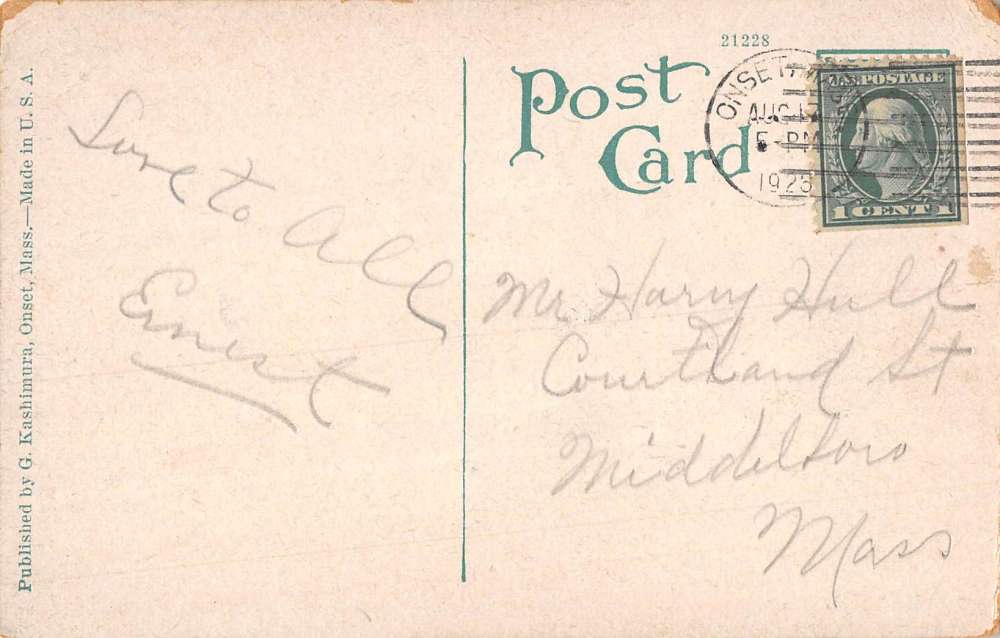 21228
Post
Card
ONSET, MASS.
AUG 17
5 - PM
1923
U.S. POSTAGE
1 CENT 1
Love to
All
Ernest
Mr Harry Hull
Courtland St
Middelboro
Mass
Published by G. Kashimura, Onset, Mass.—Made in U. S. A.